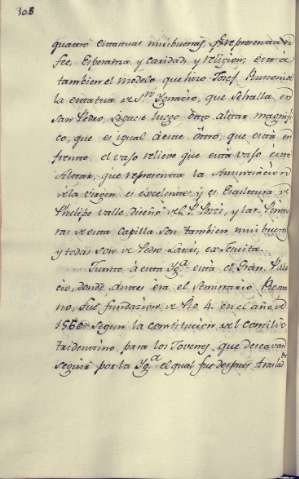 308
quatro estatuas mui buenas, q.e representan
fee, Esperanza y caridad y religion, esta a
tambien el modelo que hizo Josef Rusconi
la estatua de S.n Ignacio, que se halla en
San Pedro, sigue luego otro altar magnifi
co, que es igual a este otro, que està en
frente. el vaso relievo que està vaso este
Altar, que representa la Anunciacion
de la virgen es excelente y es Escultura de
Phelipe valle, diseño del P. Pozo, y las Pintu
ras de esta Capilla son tambien mui buenas
y todas son de Pedro Latri, ex Jesuita.
Junto à esta Yg.a està el Gran Pala
cio, donde antes era el seminario Roma
no, fue fundacion de Pio 4. en el año de
1560. segun la constitucion del Concilio
tridentino, para los Jovenes, que deseavan
seguir por la Yg.a el qual fue despues traslad